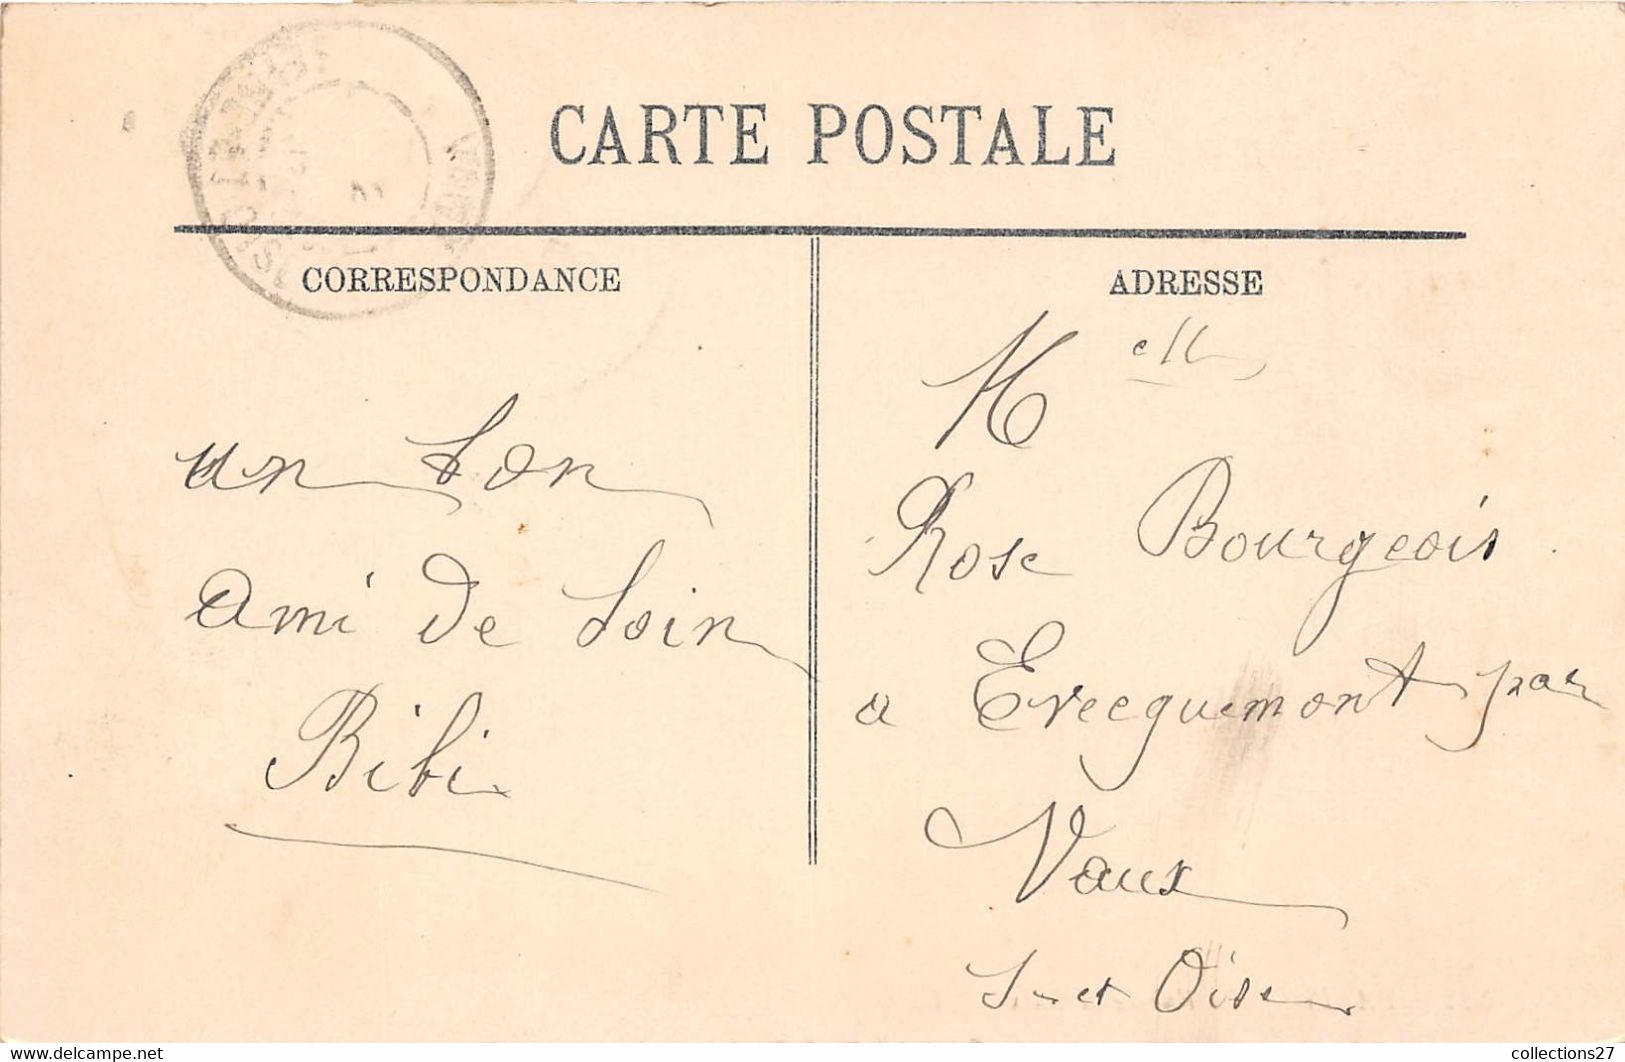 CARTE POSTALE
CORRESPONDANCE
un bon
ami de Loin
Bibi
ADRESSE
Melle
Rose Bourgeois
a Evecquemont par
Vaux
S-et Oise
www.delcampe.net
collections27